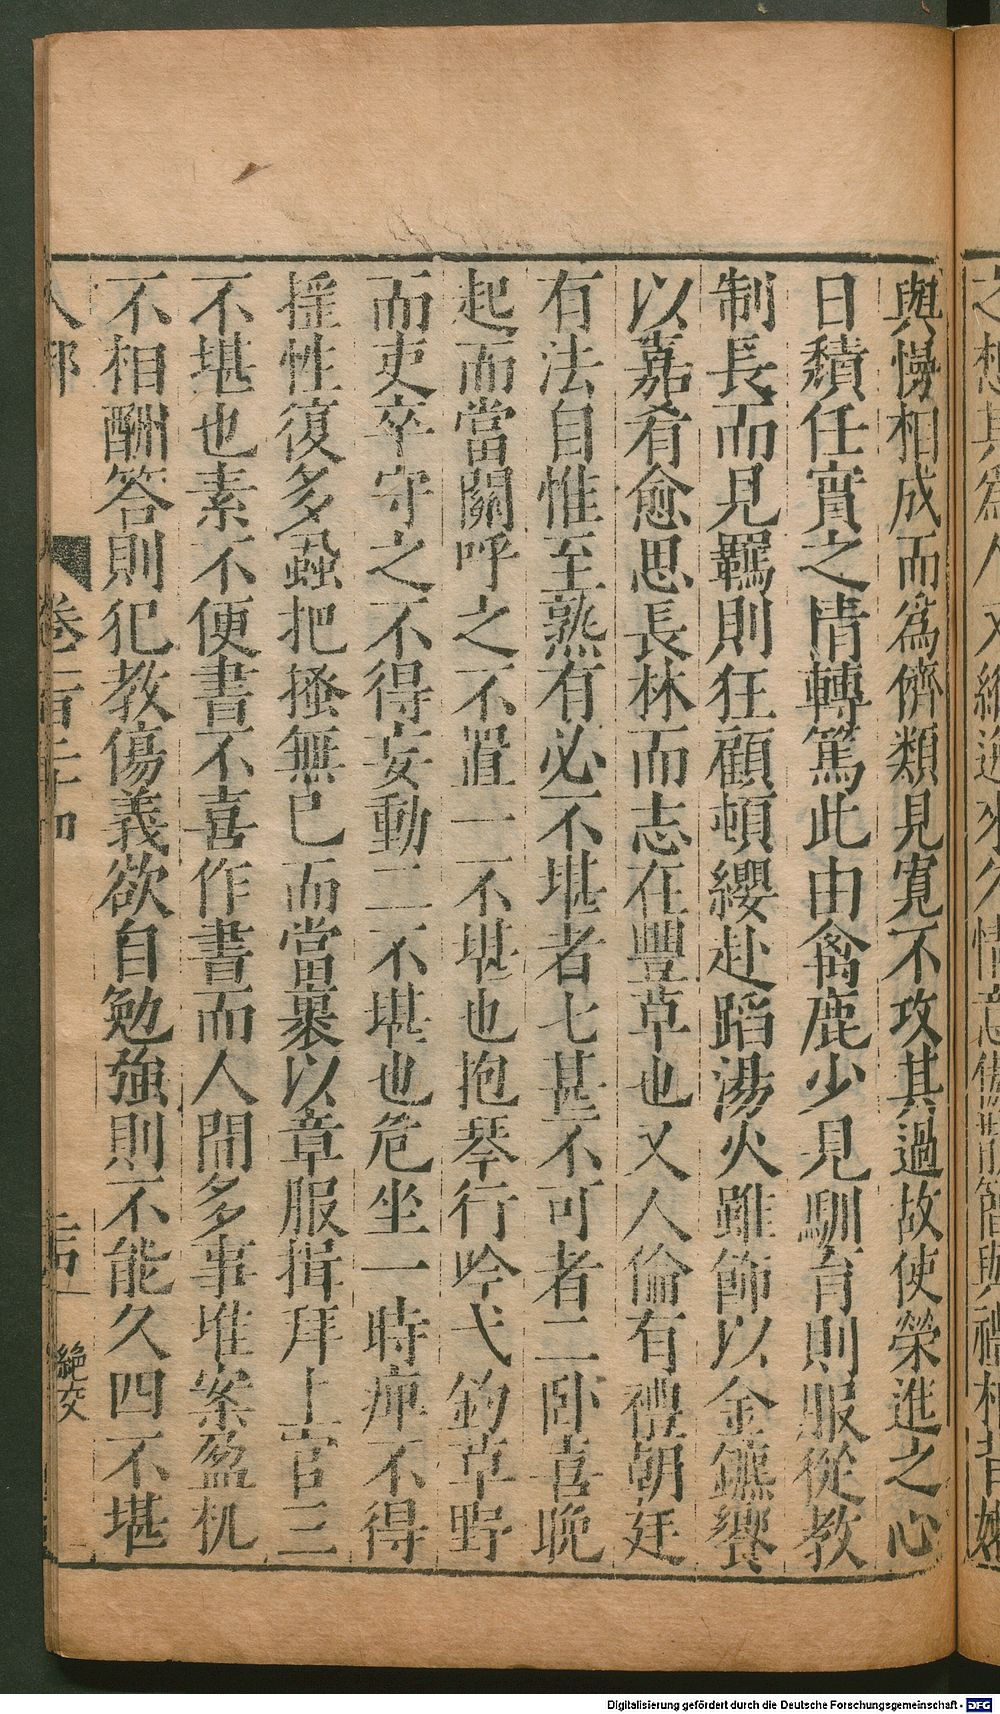 與慢相成而為儕類見寬不攻其過故使榮進之心
日穨任實之情轉篤此由禽鹿少見馴育則服從教
制長而見羈則狂顧頓纓赴蹈湯火雖飾以金鑣饗
以嘉肴愈思長林而志在豐草也又人倫有禮朝廷
有法自惟至熟有必不堪者七甚不可者二卧喜晚
起而當關呼之不置一不堪也抱琴行吟弋釣草野
而吏卒守之不得妄動二不堪也危坐一時痺不得
搖性復多蝨把搔無已而當裹以章服揖拜上官三
不堪也素不便書不喜作書而人間多事堆案盈机
不相酬答則犯教傷義欲自勉強則不能久四不堪
人部 卷二百二十四 絕交
Digitalisierung gefördert durch die Deutsche Forschungsgemeinschaft - DFG